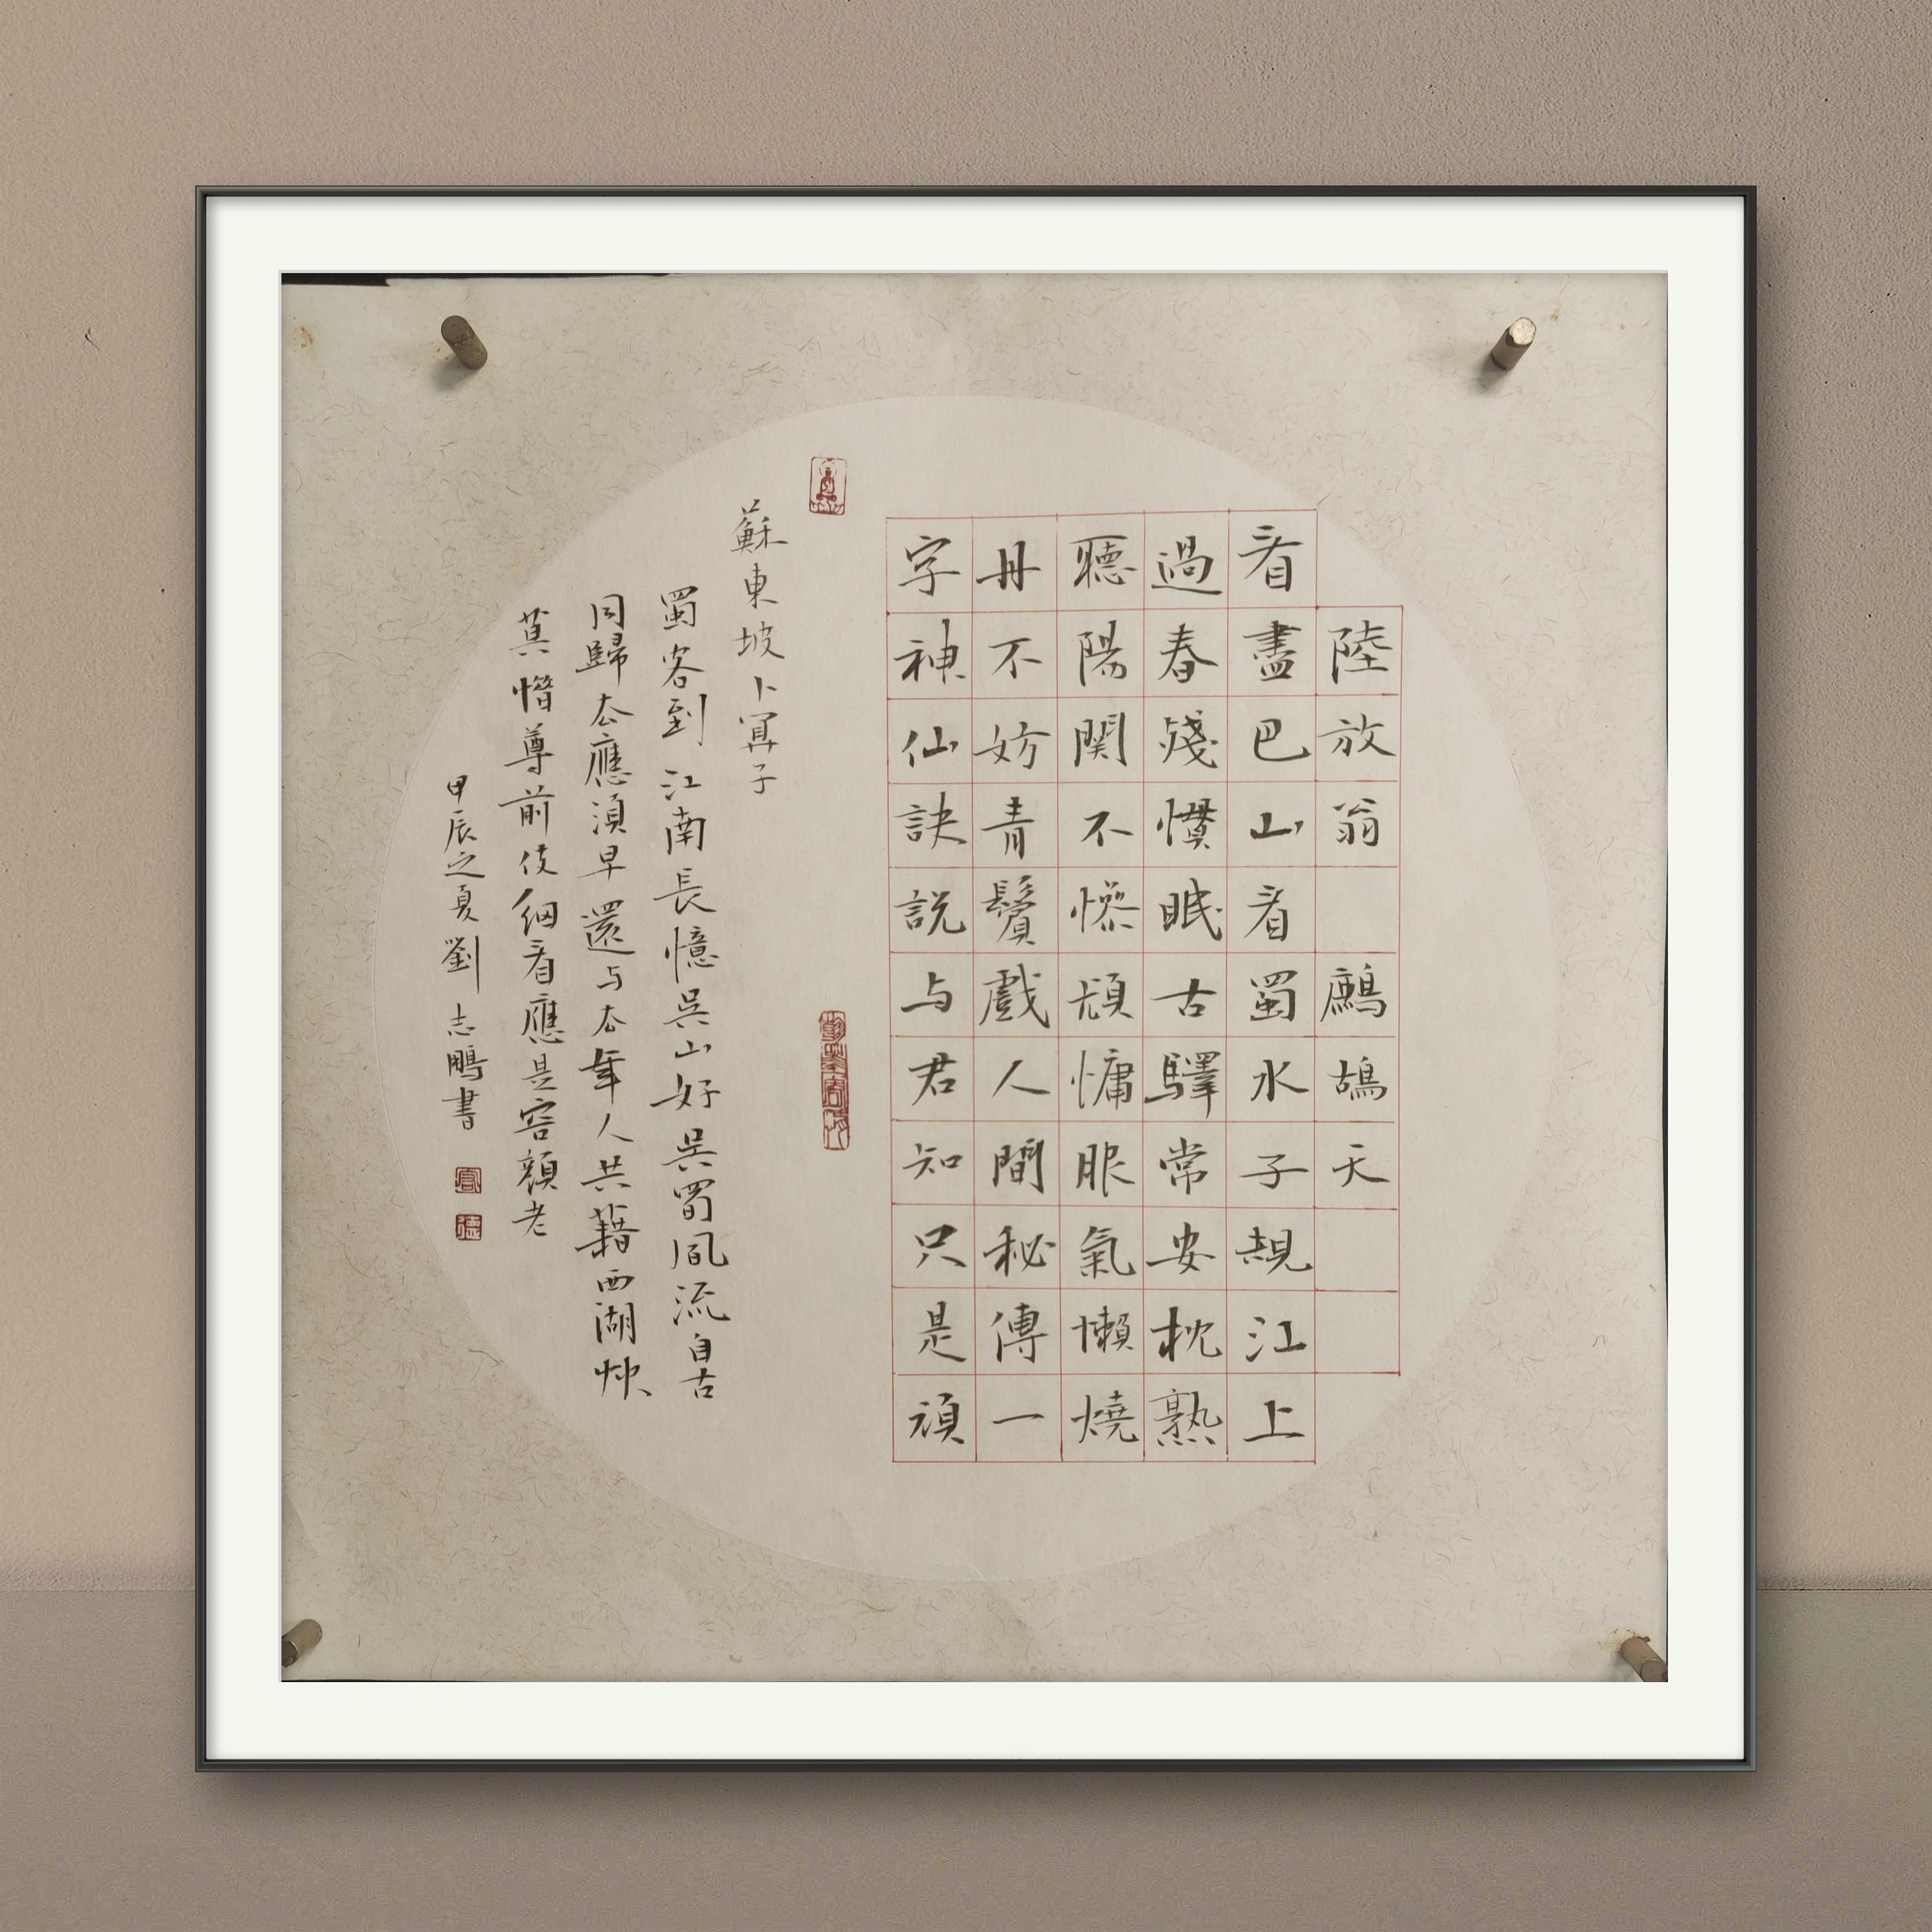 陸放翁 鷓鴣天
看盡巴山看蜀水子規江上
過春殘慣眠古驛常安枕熟
聽陽關不慘顏慵服氣懶燒
丹不妨青鬢戲人間秘傳一
字神仙訣說与君知只是頑
蘇東坡卜算子
蜀客到江南長憶吳山好吳蜀風流自古
同歸去應須早還与去年人共藉西湖艸
莫惜尊前仔細看應是容顏老
甲辰之夏劉志鵬書